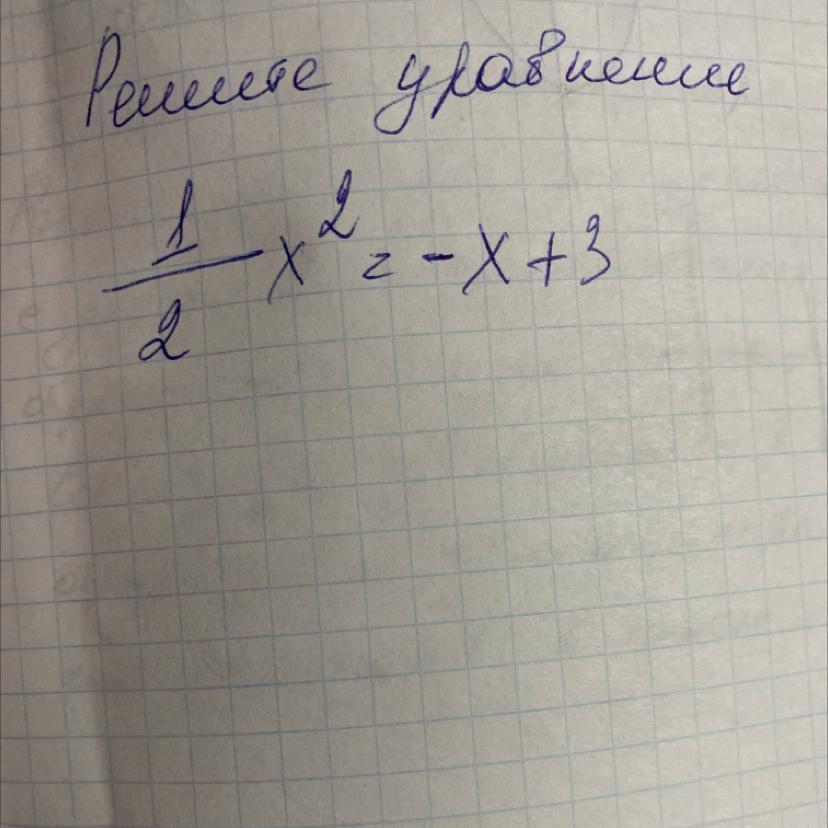 Решите уравнение
1/2 x² = -x+3